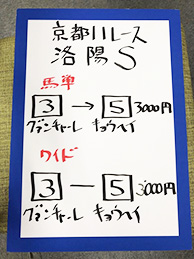 京都11レース
洛陽S
馬単
3 → 5 3000円
グァンチャーレ キョウヘイ
ワイド
3 — 5 3000円
グァンチャーレ キョウヘイ